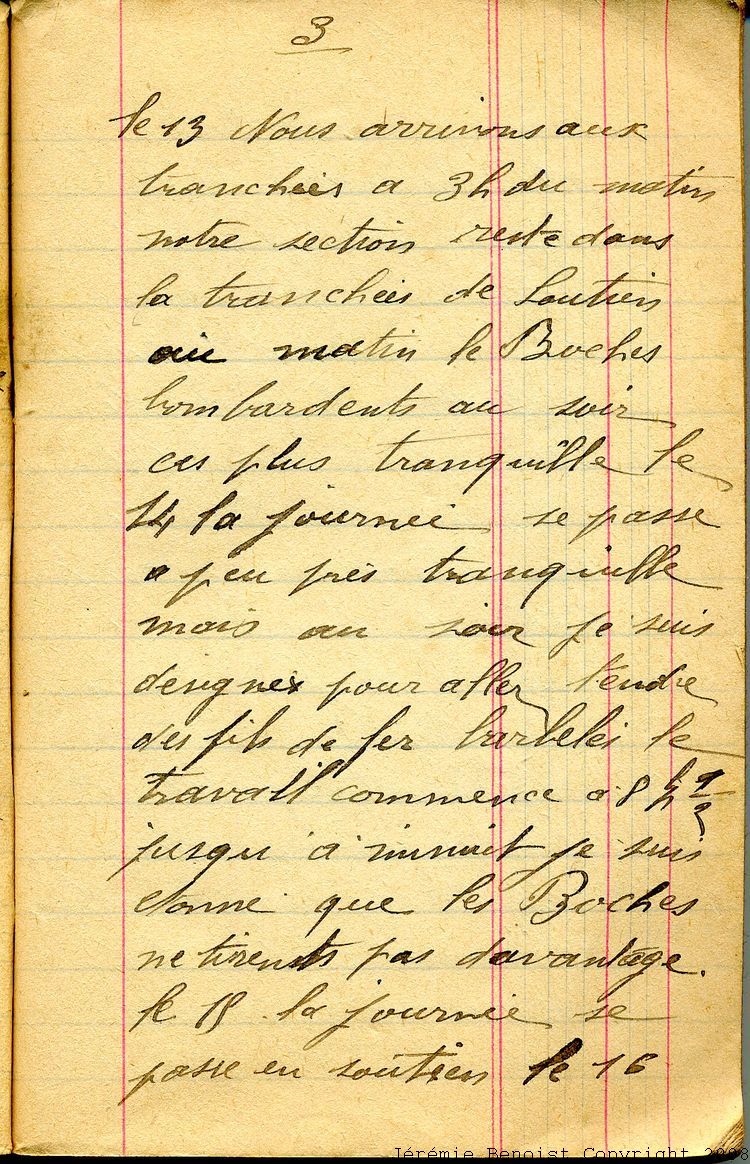 3
le 13 Nous arrivons aux
tranchées a 3h du matin
notre section reste dans
la tranchées de Soutien
au matin le Boches
bombardents au soir
ces plus tranquille le
14 la journée se passe
a peu près tranquille
mais au soir je suis
designer pour aller tendre
des fils de fer barbelés le
travail commence a 8 h 1/2
jusqu'a minuit je suis
etonné que les Boches
ne tirents pas davantage.
le 15 la journée se
passe en soutien le 16
Jérémie Benoist Copyright 2008